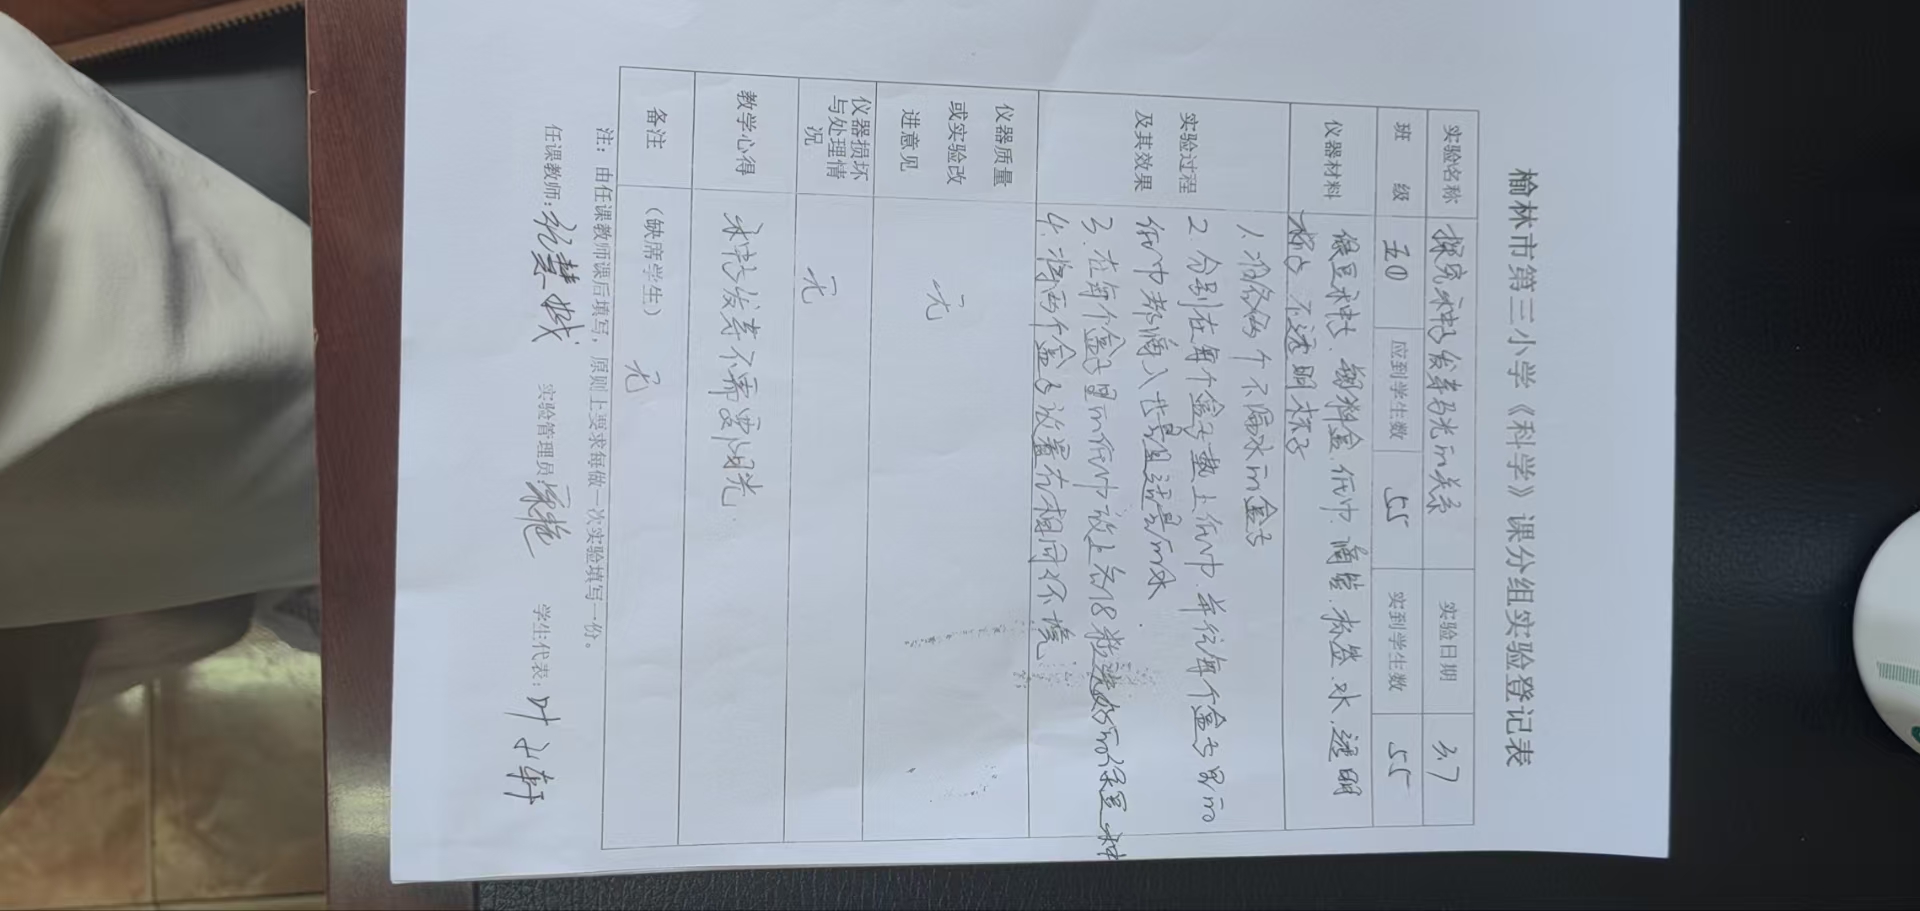 榆林市第三小学《科学》课分组实验登记表
实验名称 探究种子发芽与光的关系 实验日期 3.7
班 级 五 应到学生数 55 实到学生数 55
仪器材料 绿豆种子、塑料盒、纸巾、滴管、标签、水、透明
杯子、不透明杯子
实验过程及其效果
1. 准备两个不漏水的盒子
2. 分别在每个盒子垫上纸巾,并往每个盒子里的
纸巾中都滴入
3. 在每个盒子里的纸巾中放上
4. 将两个盒子放置在相同环境
仪器质量或实验改进意见 无
仪器损坏与处理情况 无
教学心得 种子发芽不需要阳光.
备注 (缺席学生) 无
注:由任课教师课后填写,原则上要求每做一次实验填写一份。
任课教师: 实验管理员: 学生代表:叶